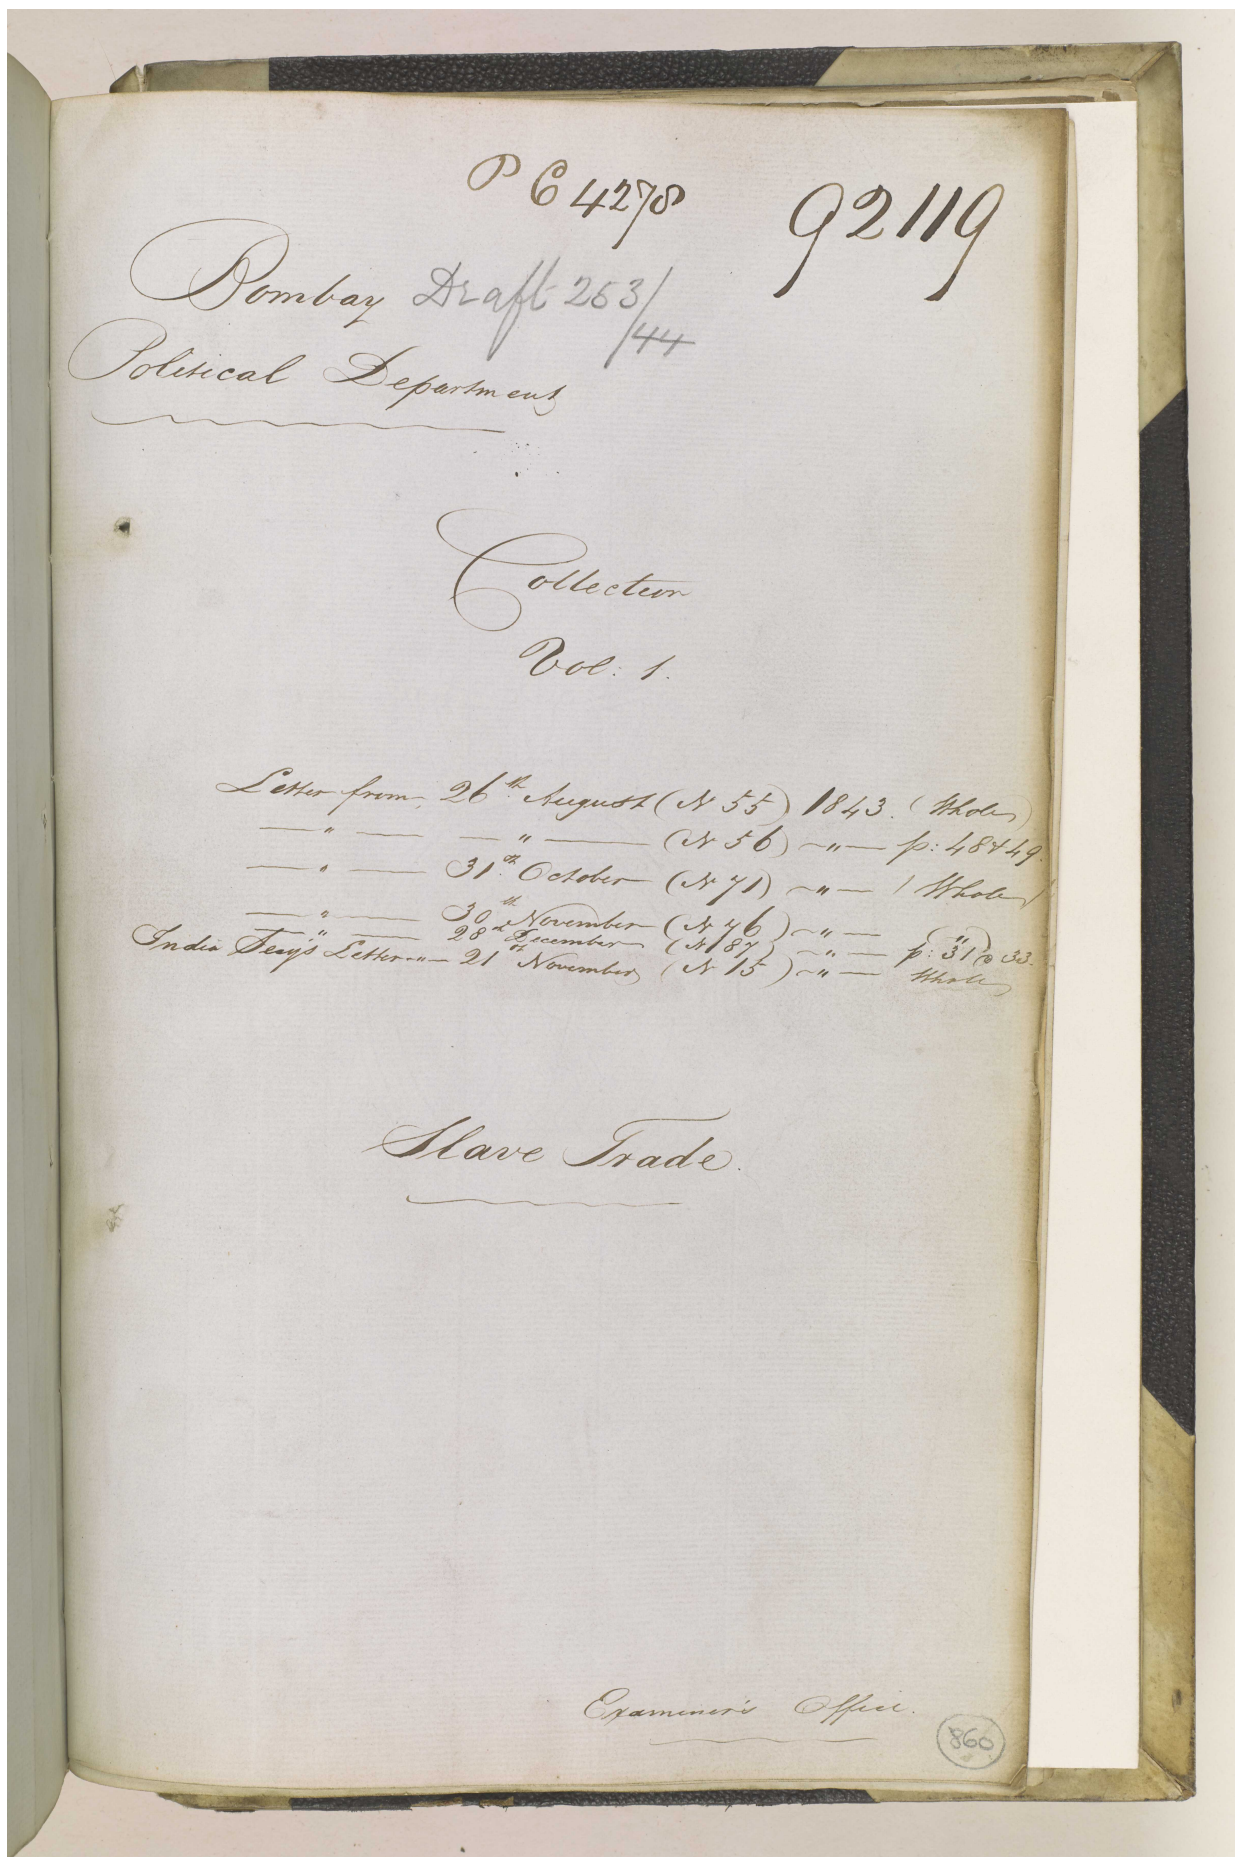 P C 4278
92119
Bombay Draft 253/44
Political Department
Collection
Vol: 1.
Letter from, 26th August (N 55) 1843. (Whole)
— " — — " — (N 56) — " — p: 48 & 49.
— " — 31st October (N 71) — " — (Whole)
— " — 30th November (N 76) — " — ( " )
— " — 28th December (N 87) — " — p: 31 @ 33.
India Secy's Letter — " — 21st November (N 15) — " — Whole
Slave Trade.
Examiner's Office.
860